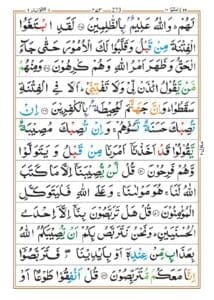 لَهُمْ ؕ وَاللّٰهُ عَلِيْمٌۢ بِالظّٰلِمِيْنَ ۝ لَقَدِ ابْتَغَوُا
الْفِتْنَةَ مِنْ قَبْلُ وَقَلَّبُوْا لَكَ الْاُمُوْرَ حَتّٰى جَآءَ
الْحَقُّ وَظَهَرَ اَمْرُ اللّٰهِ وَهُمْ كٰرِهُوْنَ ۝ وَمِنْهُمْ
مَّنْ يَّقُوْلُ ائْذَنْ لِّيْ وَلَا تَفْتِنِّيْ ؕ اَلَا فِي الْفِتْنَةِ
سَقَطُوْا ؕ وَاِنَّ جَهَنَّمَ لَمُحِيْطَةٌۢ بِالْكٰفِرِيْنَ ۝ اِنْ
تُصِبْكَ حَسَنَةٌ تَسُؤْهُمْ ۚ وَاِنْ تُصِبْكَ مُصِيْبَةٌ
يَّقُوْلُوْا قَدْ اَخَذْنَاۤ اَمْرَنَا مِنْ قَبْلُ وَيَتَوَلَّوْا
وَّهُمْ فَرِحُوْنَ ۝ قُلْ لَّنْ يُّصِيْبَنَاۤ اِلَّا مَا كَتَبَ
اللّٰهُ لَنَا ۚ هُوَ مَوْلٰىنَا ۚ وَعَلَى اللّٰهِ فَلْيَتَوَكَّلِ
الْمُؤْمِنُوْنَ ۝ قُلْ هَلْ تَرَبَّصُوْنَ بِنَاۤ اِلَّاۤ اِحْدَى
الْحُسْنَيَيْنِ ؕ وَنَحْنُ نَتَرَبَّصُ بِكُمْ اَنْ يُّصِيْبَكُمُ اللّٰهُ
بِعَذَابٍ مِّنْ عِنْدِهٖۤ اَوْ بِاَيْدِيْنَا ۖ فَتَرَبَّصُوْۤا
اِنَّا مَعَكُمْ مُّتَرَبِّصُوْنَ ۝ قُلْ اَنْفِقُوْا طَوْعًا اَوْ